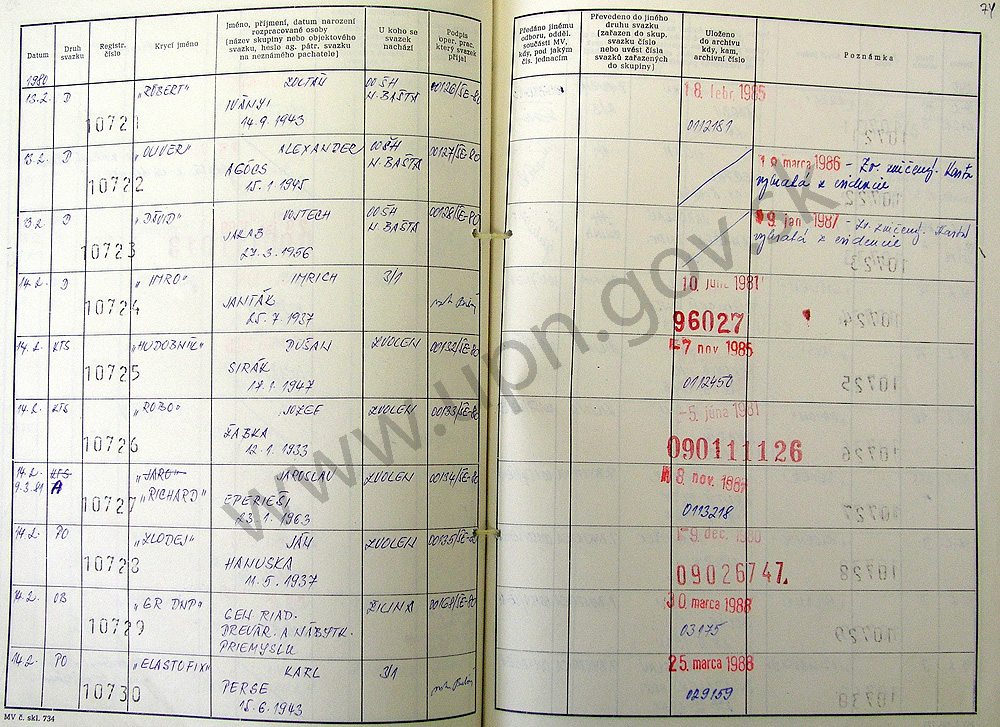 74
Datum
Druh svazku
Registr. číslo
Krycí jméno
Jméno, příjmení, datum narození
rozpracované osoby
(název skupiny nebo objektového
svazku, heslo ag. pátr. svazku
na neznámého pachatele)
U koho se
svazek
nachází
Podpis
oper. prac.
který svazek
přijal
Předáno jinému
odboru, odděl.
součásti MV,
kdy, pod jakým
čís. jednacím
Převedeno do jiného
druhu svazku
(zařazen do skup.
svazku číslo
nebo uvést čísla
svazků zařazených
do skupiny)
Uloženo
do archivu
kdy, kam,
archivní číslo
Poznámka
1980
13.2. D 10721 "RÓBERT" ZOLTÁN
IVÁNYI
14.9.1943
00 ŠH
N. BAŠTA
00126/ŠE-80
18. febr. 1985
0112181
13.2. D 10722 "OLIVER" ALEXANDER
AGÓCS
15.1.1945
00 ŠH
N. BAŠTA
00127/ŠE-80
marca 1986 - Zv. zničený. Karta
vybratá z evidencie
13.2. D 10723 "DÁVID" VOJTECH
JAKAB
27.3.1956
00 ŠH
N. BAŠTA
00128/ŠE-80
9. jan. 1987 - Zv. zničený. Karta
vybratá z evidencie
14.2. D 10724 "IMRO" IMRICH
JANTÁK
25.7.1937
3/1
10. 1981
96027
14.2. KTS 10725 "HUDOBNÍK" DUŠAN
SIRÁK
17.1.1947
ZVOLEN
00132/ŠE-80
-7. nov. 1985
0112450
14.2. KTS 10726 "ROBO" JOZEF
ŽABKA
12.1.1933
ZVOLEN
00133/ŠE-80
-5. júna 1981
090111126
14.2. KTS
9.3.81 A
10727 "JARO"
"RICHARD"
JAROSLAV
EPERIEŠI
23.1.1963
ZVOLEN
00134/ŠE-80
8. nov. 1987
0113218
14.2. PO 10728 "ZLODEJ" JÁN
HANUSKA
11.5.1937
ZVOLEN
00135/ŠE-80
-9. dec. 1980
09026747.
14.2. OB 10729 "GR DNP"
GEN. RIAD.
DREVÁR. A NÁBYTK.
PRIEMYSLU
ŽILINA
00168/ŠE-80
30. marca 1988
03175
14.2. PO 10730 "ELASTOFIX" KARL
PERSE
15.6.1943
3/1
25. marca 1988
029159
MV č. skl. 734
www.upn.gov.sk